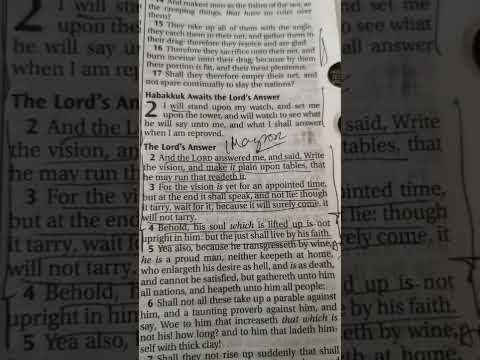 14 And makest men as the fishes of the sea, as
the creeping things, that have no ruler over
them?
15 They take up all of them with the angle,
they catch them in their net, and gather them in
their drag: therefore they rejoice and are glad.
16 Therefore they sacrifice unto their net, and
burn incense unto their drag; because by them
their portion is fat, and their meat plenteous.
17 Shall they therefore empty their net, and
not spare continually to slay the nations?
Habakkuk Awaits the Lord's Answer
2 I will stand upon my watch, and set me
upon the tower, and will watch to see what
he will say unto me, and what I shall answer
when I am reproved.
The Lord's Answer
2 And the LORD answered me, and said, Write
the vision, and make it plain upon tables, that
he may run that readeth it.
3 For the vision is yet for an appointed time,
but at the end it shall speak, and not lie: though
it tarry, wait for it; because it will surely come, it
will not tarry.
4 Behold, his soul which is lifted up is not
upright in him: but the just shall live by his faith.
5 Yea also, because he transgresseth by wine,
he is a proud man, neither keepeth at home,
who enlargeth his desire as hell, and is as death,
and cannot be satisfied, but gathereth unto him
all nations, and heapeth unto him all people:
6 Shall not all these take up a parable against
him, and a taunting proverb against him, and
say, Woe to him that increaseth that which is
not his! how long? and to him that ladeth him-
self with thick clay!
7 Shall they not rise up suddenly that shall